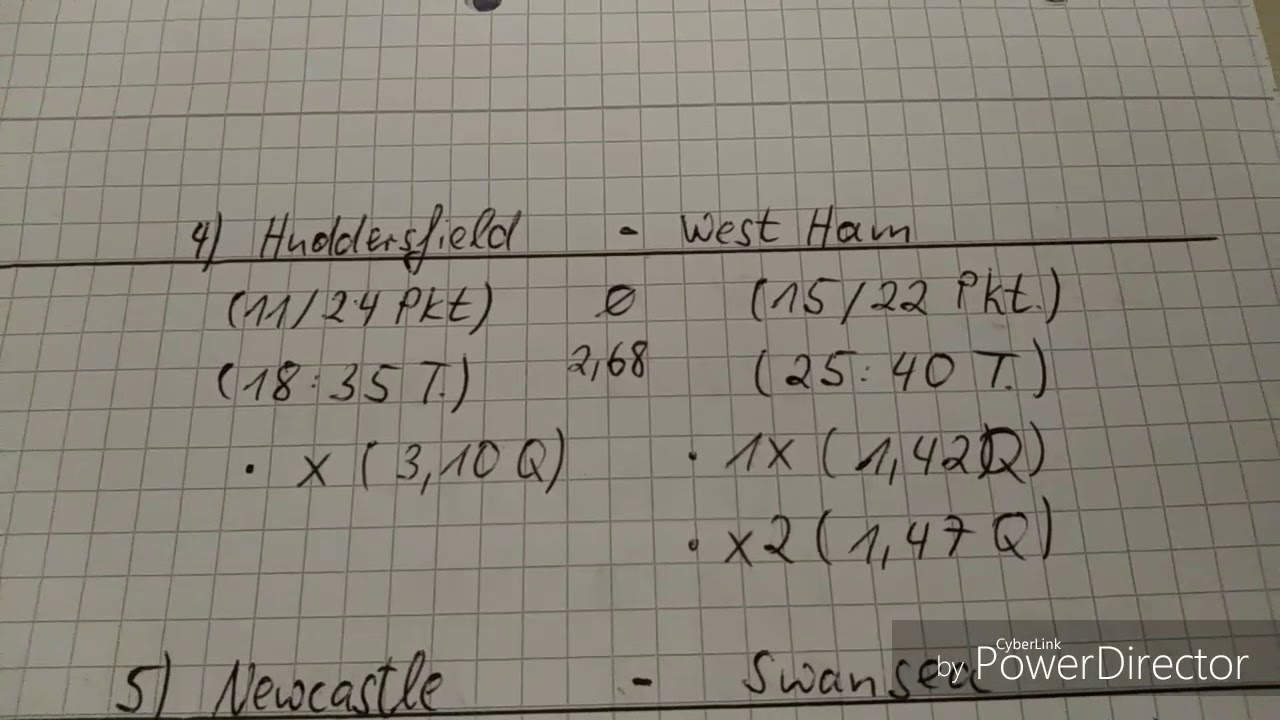 4) Huddersfield - West Ham
(11/24 Pkt) Ø (15/22 Pkt.)
(18:35 T.) 2,68 (25:40 T.)
· x (3,10 Q) · 1x (1,42Q)
· x2 (1,47 Q)
5) Newcastle - Swansea
CyberLink
by PowerDirector